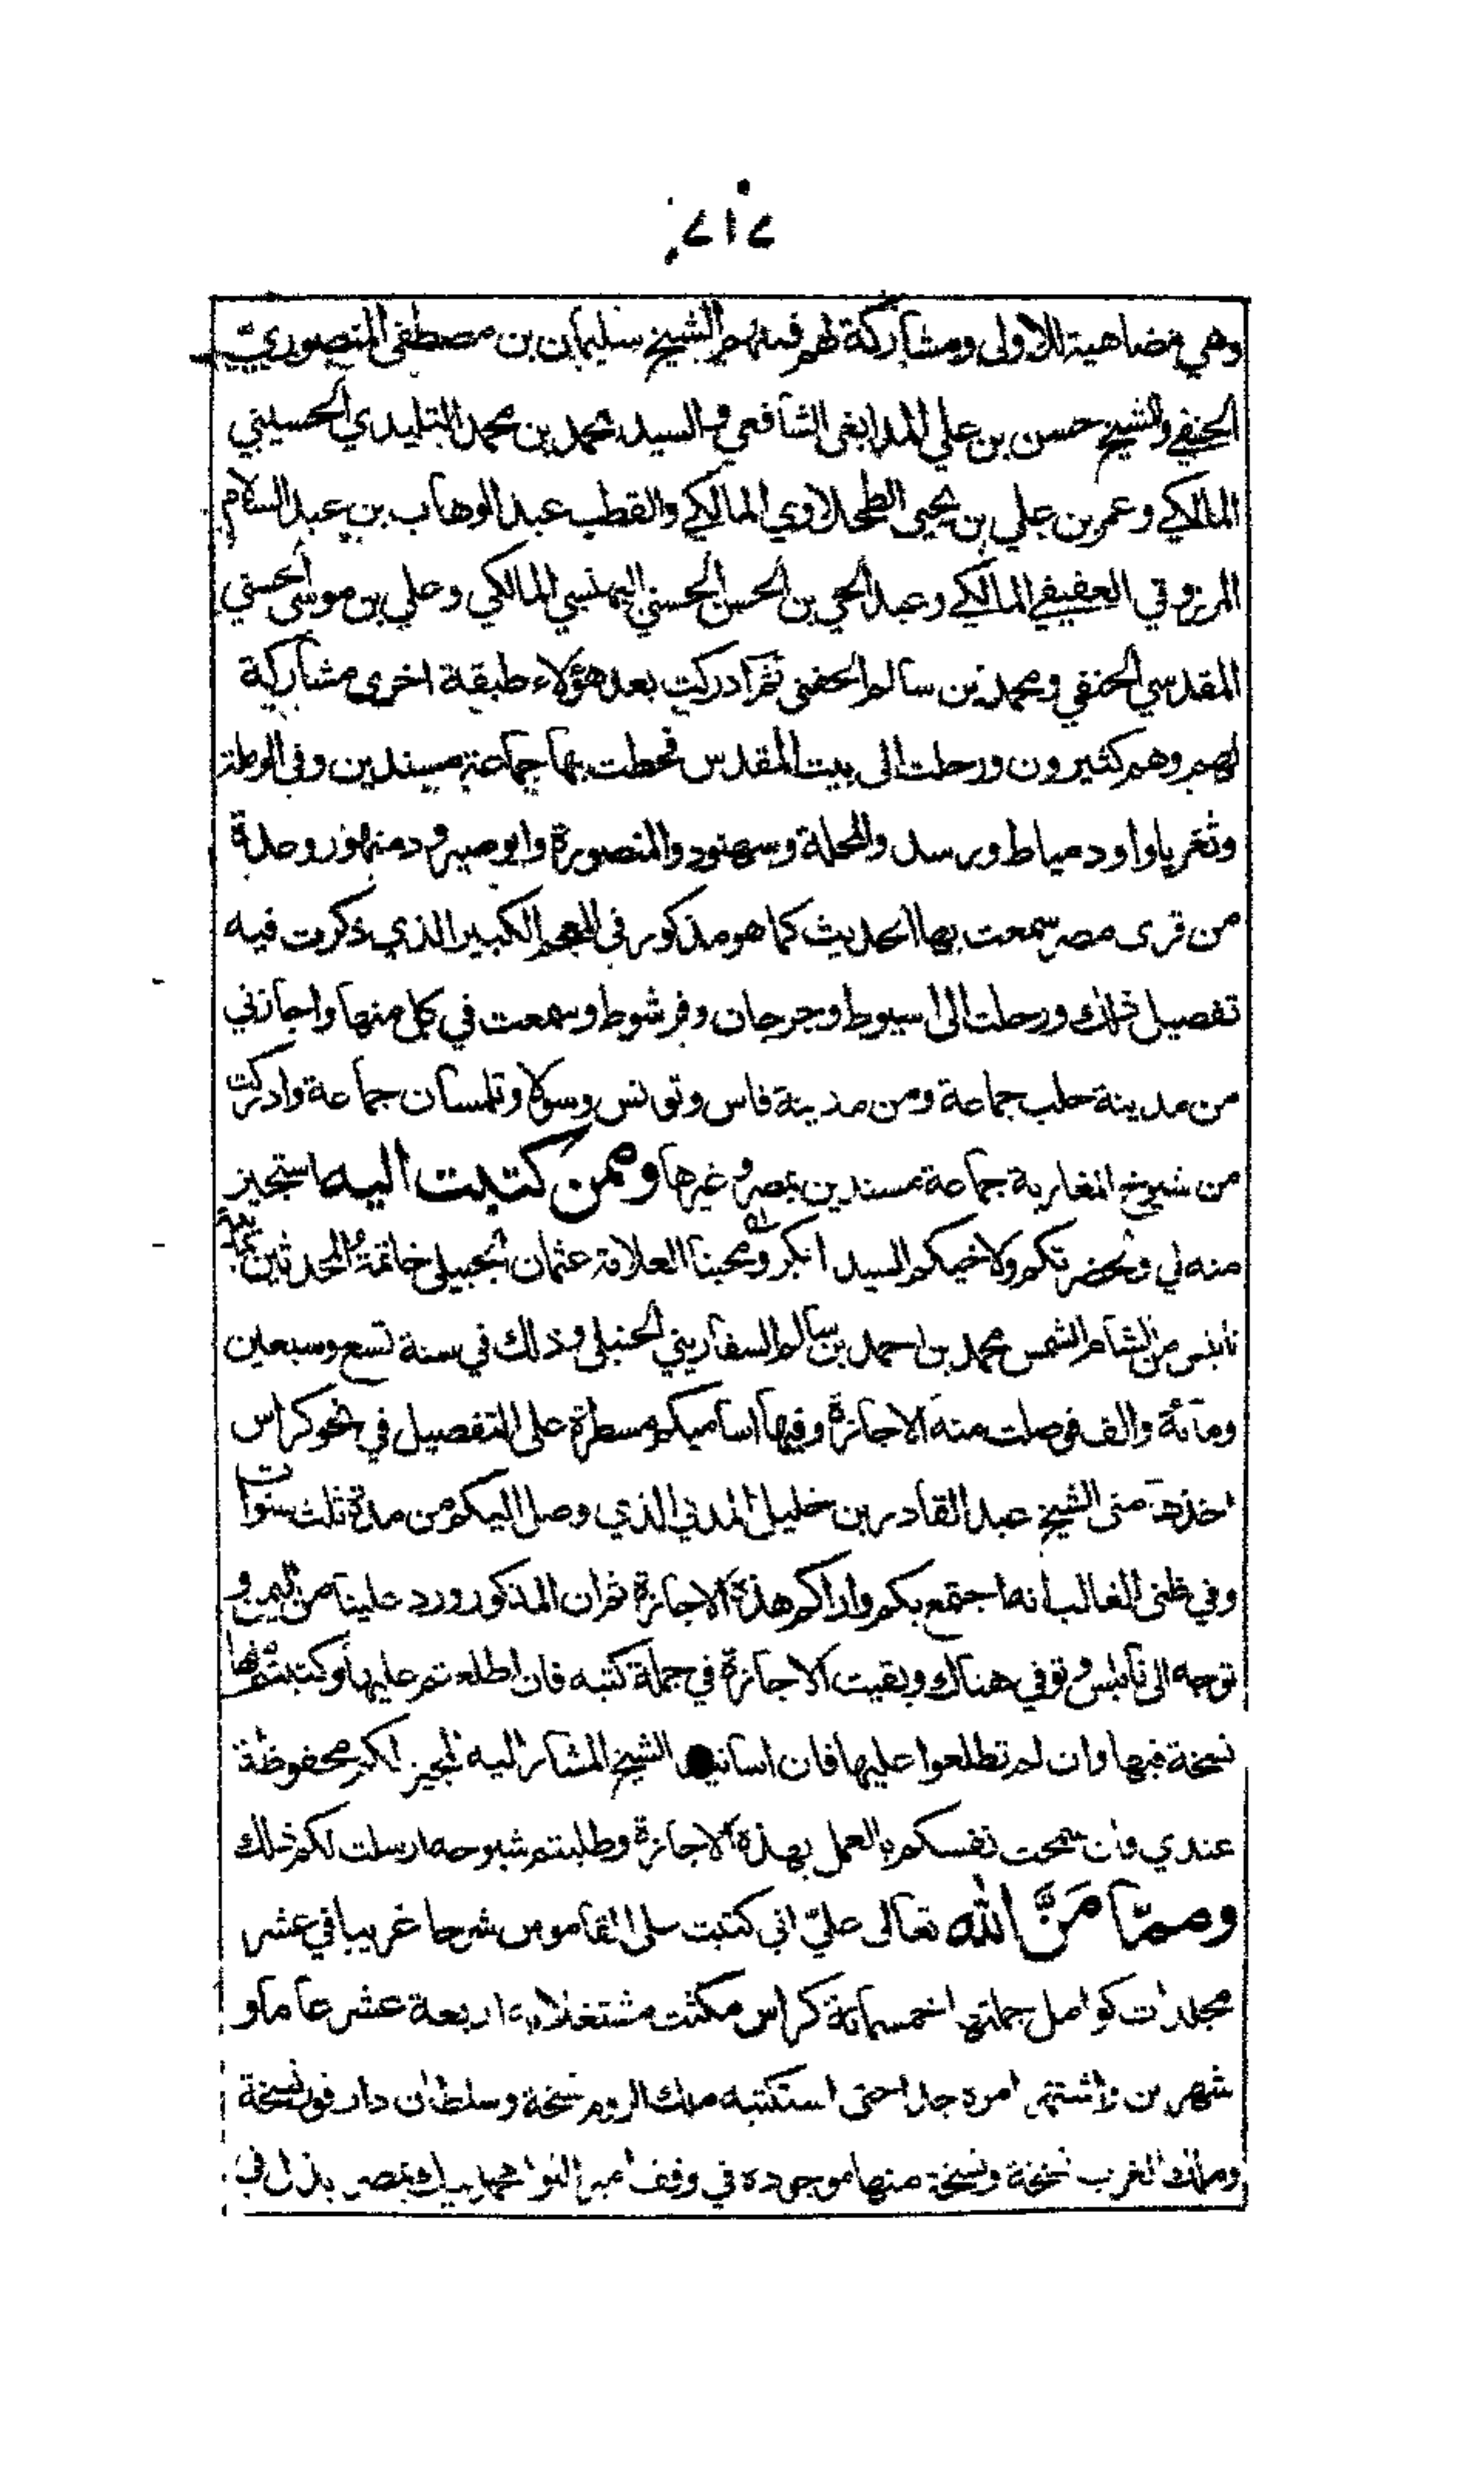 ٢١٢
وهي مضاهية للاولى ومشاركة لهم فمنهم الشيخ سليمان بن مصطفى المنصوري
الحنفي والشيخ حسن بن علي المدابغى الشافعي والسيد محمد بن محمد البليدي الحسيني
المالكي وعمر بن علي بن يحيى الطحلاوي المالكي والقطب عبد الوهاب بن عبد السلام
المرزوقي العفيفي المالكي وعبد الحي بن الحسن الحسني البهنسي المالكي وعلي بن موسى الحسني
المقدسي الحنفي ومحمد بن سالم الحفنى ثم ادركت بعد هؤلاء طبقة اخرى مشاركة
لهم وهم كثيرون ورحلت الى بيت المقدس فحظت بها جماعة مسندين وفي الرملة
وثغر يافا ودمياط ورسد والمحلة وسمنود والمنصورة وابوصير ودمنهور وعدة
من قرى مصر سمعت بها الحديث كما هو مذكور في المعجم الكبير الذي ذكرت فيه
تفصيل ذلك ورحلت الى اسيوط وجرجان وفرشوط وسمعت في كل منها واجازني
من مدينة حلب جماعة ومن مدينة فاس وتونس وسلا وتلمسان جماعة وادركت
من شيوخ المغاربة جماعة مسندين بمصر وغيرها وممن كتبت اليه استجيز
منه لي ولحضرتكم ولاخيكم السيد ابكر ومحبنا العلامة عثمان الجبيلي خاتمة المحدثين
نابلس من الشام الشمس محمد بن احمد بن سالم السفاريني الحنبلى وذلك في سنة تسع وسبعين
ومائة والف فوصلت منه الاجازة وفيها اساميكم مسطرة على التفصيل في نحو كراس
اخذها منى الشيخ عبد القادر بن خليل المدني الذي وصل اليكم من مدة ثلث سنوات
وفي ظنى الغالب انه اجتمع بكم واراكم هذه الاجازة ثم ان المذكور ورد علينا من اليمن و
توجه الى نابلس وتوفي هناك وبقيت الاجازة في جملة كتبه فان اطلعتم عليها وكتبتم لها
نسخة فبها وان لم تطلعوا عليها فان اسانيد الشيخ المشار اليه المجيز لكم محفوظة
عندي فان سمحت نفسكم بالعمل بهذه الاجازة وطلبتم شيوخه ارسلت لكم ذلك
ومما مَنَّ الله تعالى عليّ اني كتبت على القاموس شرحا غريبا في عشر
مجلدات كوامل جملتها خمسمائة كراس مكثت مشتغلا به اربعة عشر عاما و
شهرين واشتهر امره جدا حتى استكتبه ملك الروم نسخة وسلطان دار فور نسخة
وملك الغرب نسخة ونسخة منها موجوده في وقف امير اللوا محمد بيك بمصر بذل في